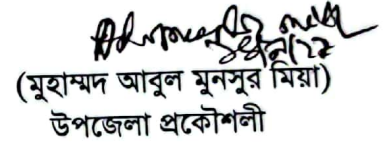 (মুহাম্মদ আবুল মুনসুর মিয়া)
উপজেলা প্রকৌশলী